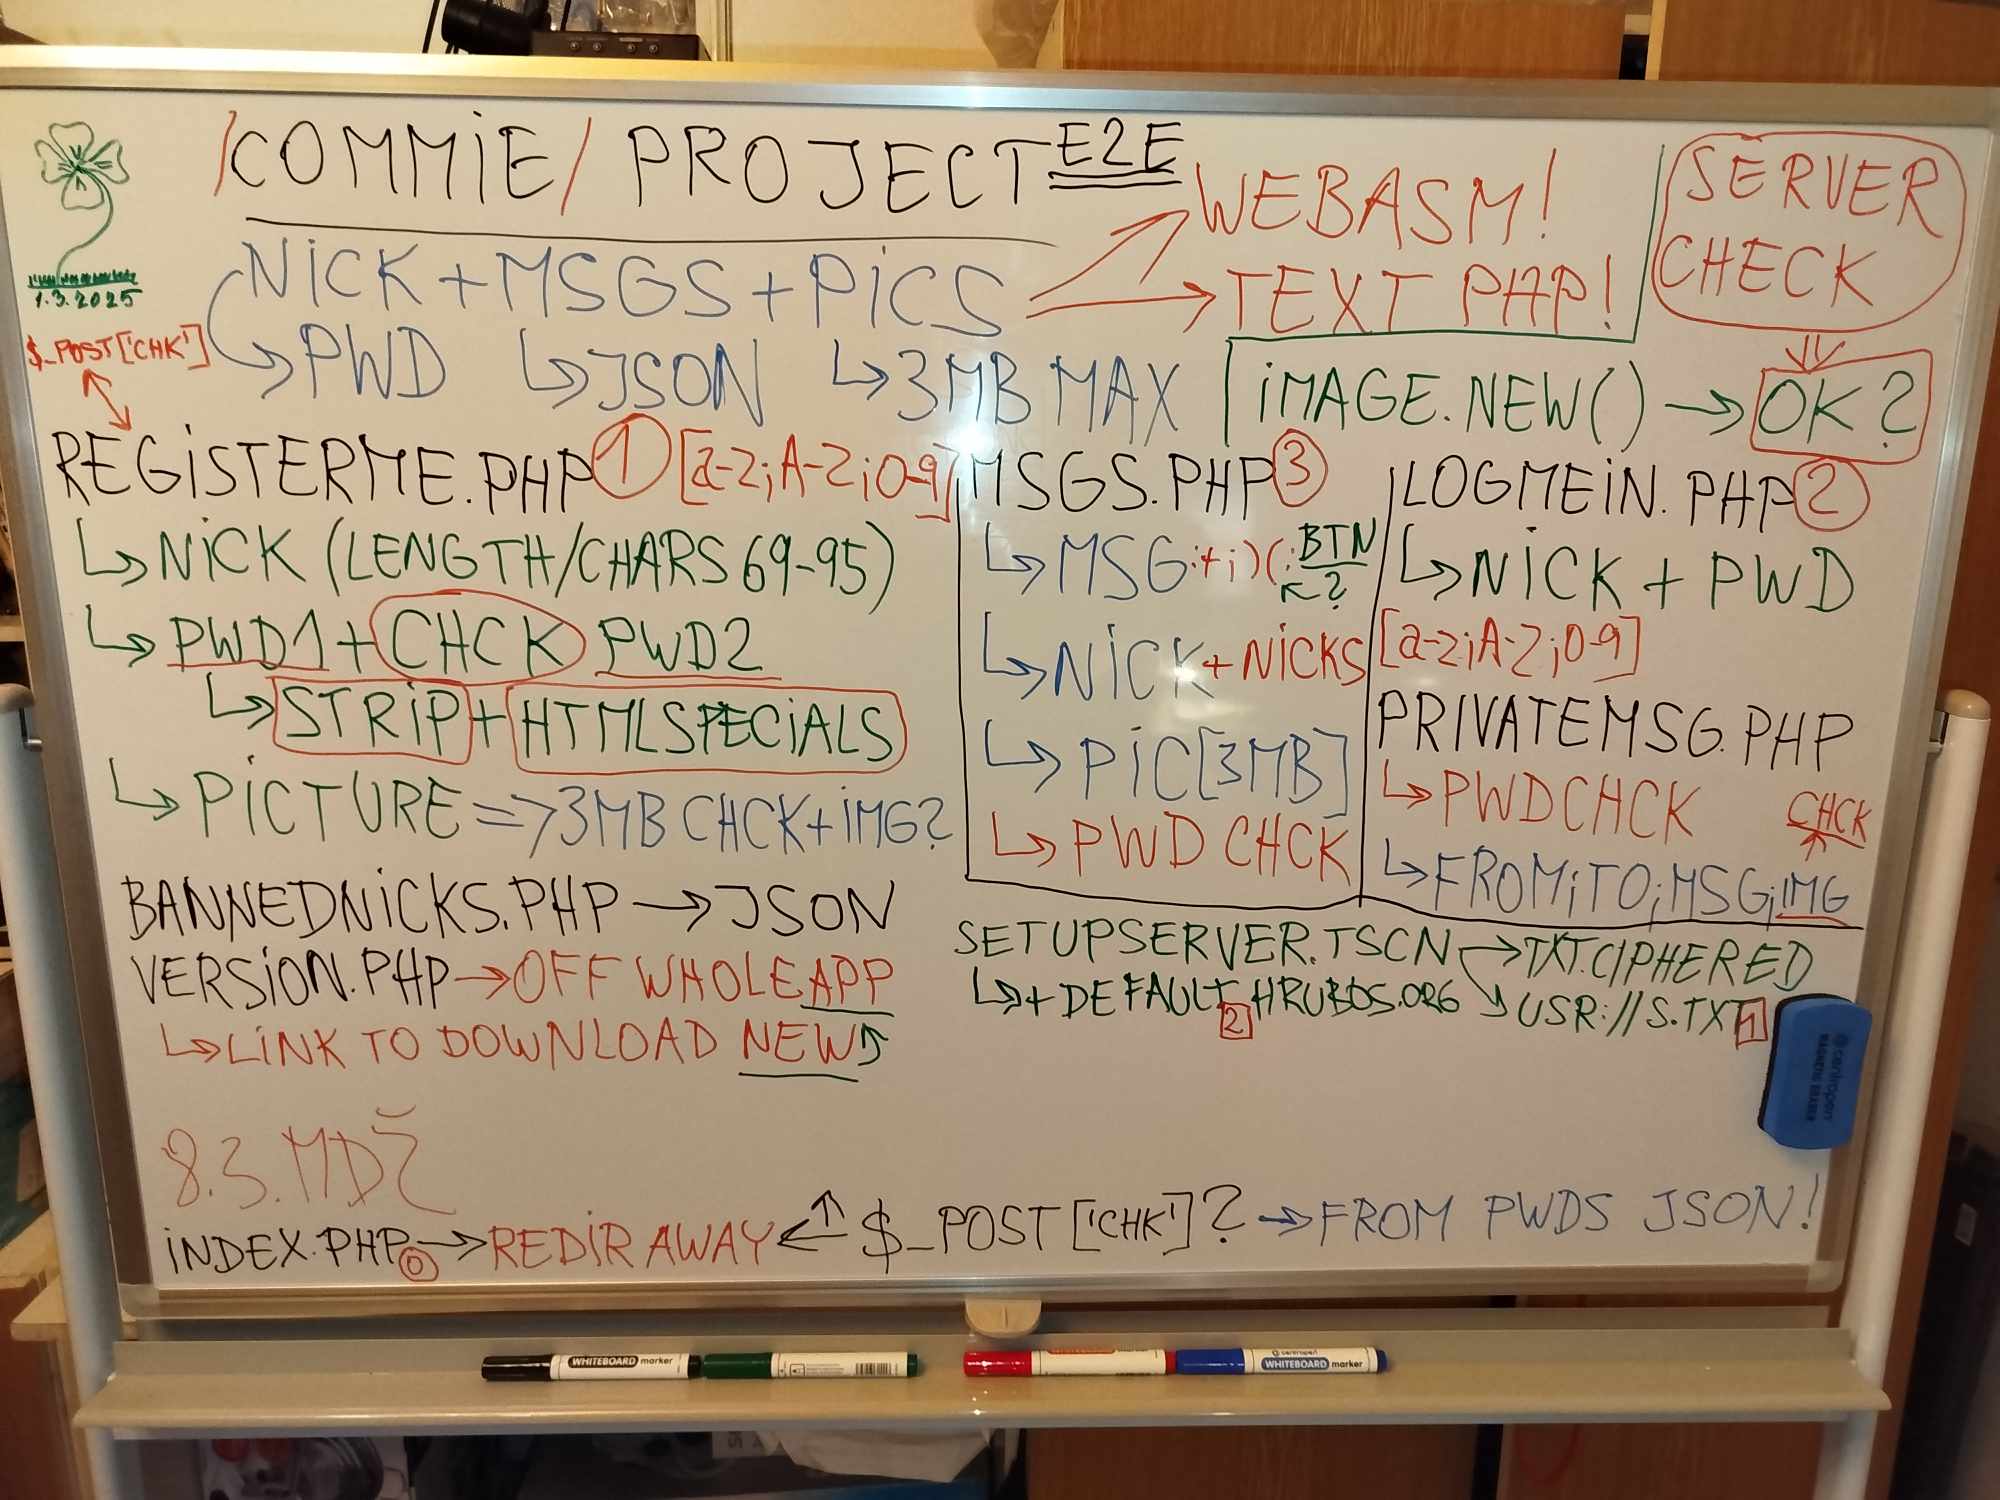 /COMMIE/ PROJECT E2E
1.3.2025
NICK + MSGS + PICS
WEBASM!
TEXT PHP!
SERVER CHECK
$_POST['CHK']
↳ PWD ↳ JSON ↳ 3MB MAX
IMAGE.NEW() → OK?
REGISTERME.PHP 1 [a-z;A-Z;0-9]
↳ NICK (LENGTH/CHARS 69-95)
↳ PWD1 + CHCK PWD2
↳ STRIP + HTMLSPECIALS
↳ PICTURE => 3MB CHCK + IMG?
BANNEDNICKS.PHP → JSON
VERSION.PHP → OFF WHOLE APP
↳ LINK TO DOWNLOAD NEW ↑
MSGS.PHP 3
↳ MSG :+;)(: BTN
↳ NICK + NICKS
↳ PIC [3MB]
↳ PWD CHCK
LOGMEIN.PHP 2
↳ NICK + PWD
[a-z;A-Z;0-9]
PRIVATEMSG.PHP
↳ PWDCHCK
CHCK
↳ FROM;TO;MSG;IMG
SETUPSERVER.TSCN → TXT.CIPHERED
↳ + DEFAULT HRUBOS.ORG ↘ USR://S.TXT 1
2
centropen
MAGNETIC ERASER
8.3. MDŽ
INDEX.PHP 0 → REDIR AWAY ← ↑ $_POST['CHK']? → FROM PWDS JSON!
WHITEBOARD marker
centropen
WHITEBOARD marker
WHITEBOARD marker